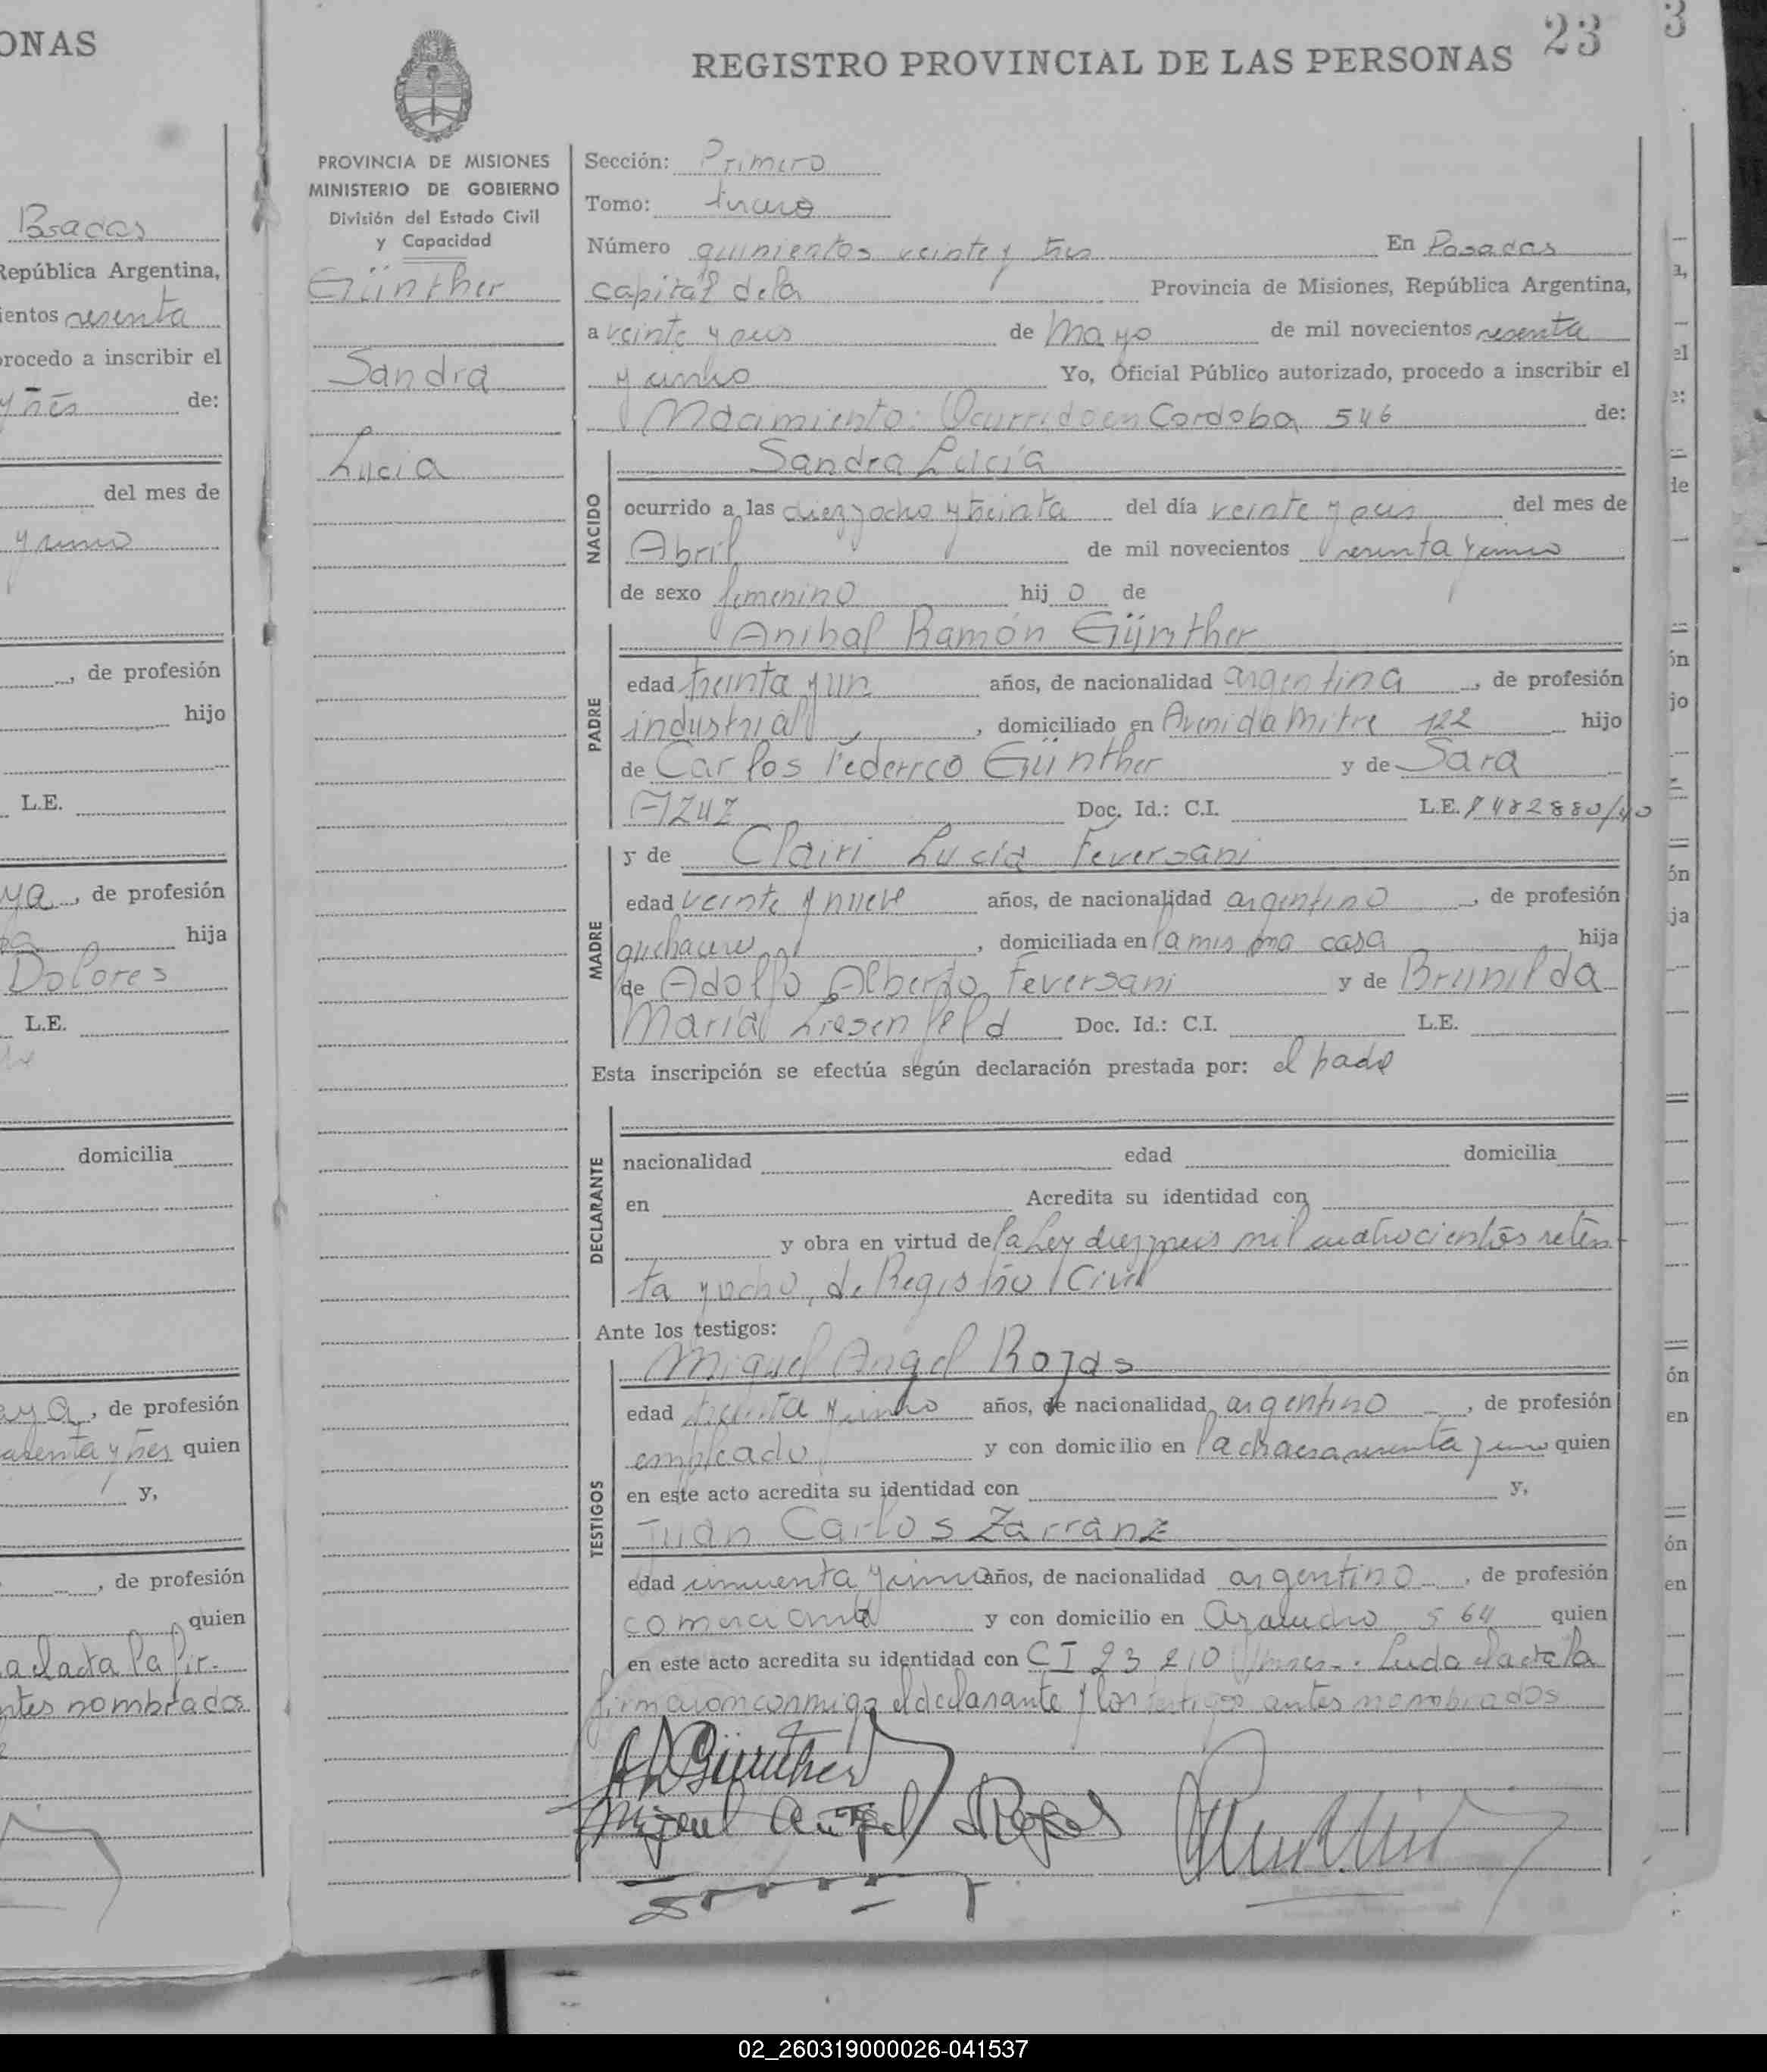 ONAS
Posadas
República Argentina,
ientos sesenta
procedo a inscribir el
y tres de:
del mes de
y uno
, de profesión
hijo
L.E.
ya, de profesión
hija
Dolores
L.E.
domicilia
aya, de profesión
y tres quien
y,
, de profesión
quien
a el acta la fir-
ntes nombrados
REGISTRO PROVINCIAL DE LAS PERSONAS 23
PROVINCIA DE MISIONES
MINISTERIO DE GOBIERNO
División del Estado Civil
y Capacidad
Günther
Sandra
Lucia
Sección: Primero
Tomo: tercero
Número quinientos veinte y tres En Posadas
capital de la Provincia de Misiones, República Argentina,
a veinte y seis de Mayo de mil novecientos sesenta
y cinco Yo, Oficial Público autorizado, procedo a inscribir el
Nacimiento: Ocurrido en Cordoba 546 de:
NACIDO
Sandra Lucía
ocurrido a las diez y ocho y treinta del día veinte y seis del mes de
Abril de mil novecientos sesenta y cinco
de sexo femenino hij o de
PADRE
Anibal Ramón Günther
edad treinta y un años, de nacionalidad argentina, de profesión
industrial, domiciliado en Avenida Mitre 122 hijo
de Carlos Federico Günther y de Sara
Azuz Doc. Id.: C.I. L.E. 7482880/40
MADRE
y de Clairi Lucia Feversani
edad veinte y nueve años, de nacionalidad argentino, de profesión
quehaceres, domiciliada en la misma casa hija
de Adolfo Alberto Feversani y de Brunilda
Maria Liesenfeld Doc. Id.: C.I. L.E.
Esta inscripción se efectúa según declaración prestada por: el padre
DECLARANTE
nacionalidad edad domicilia
en Acredita su identidad con
y obra en virtud de la Ley diez y seis mil cuatrocientos seten
ta y ocho, de Registro Civil
Ante los testigos:
TESTIGOS
Miguel Angel Rojas
edad treinta y cinco años, de nacionalidad argentino, de profesión
empleado y con domicilio en la chacra sesenta y uno quien
en este acto acredita su identidad con y,
Juan Carlos Zarranz
edad cincuenta y cinco años, de nacionalidad argentino, de profesión
comerciante y con domicilio en Ayacucho 564 quien
en este acto acredita su identidad con CI 23 210 Mnes.. Leida el acta la
firmaron conmigo, el declarante y los testigos antes nombrados
Günther
Miguel Angel Rojas
3
02_260319000026-041537